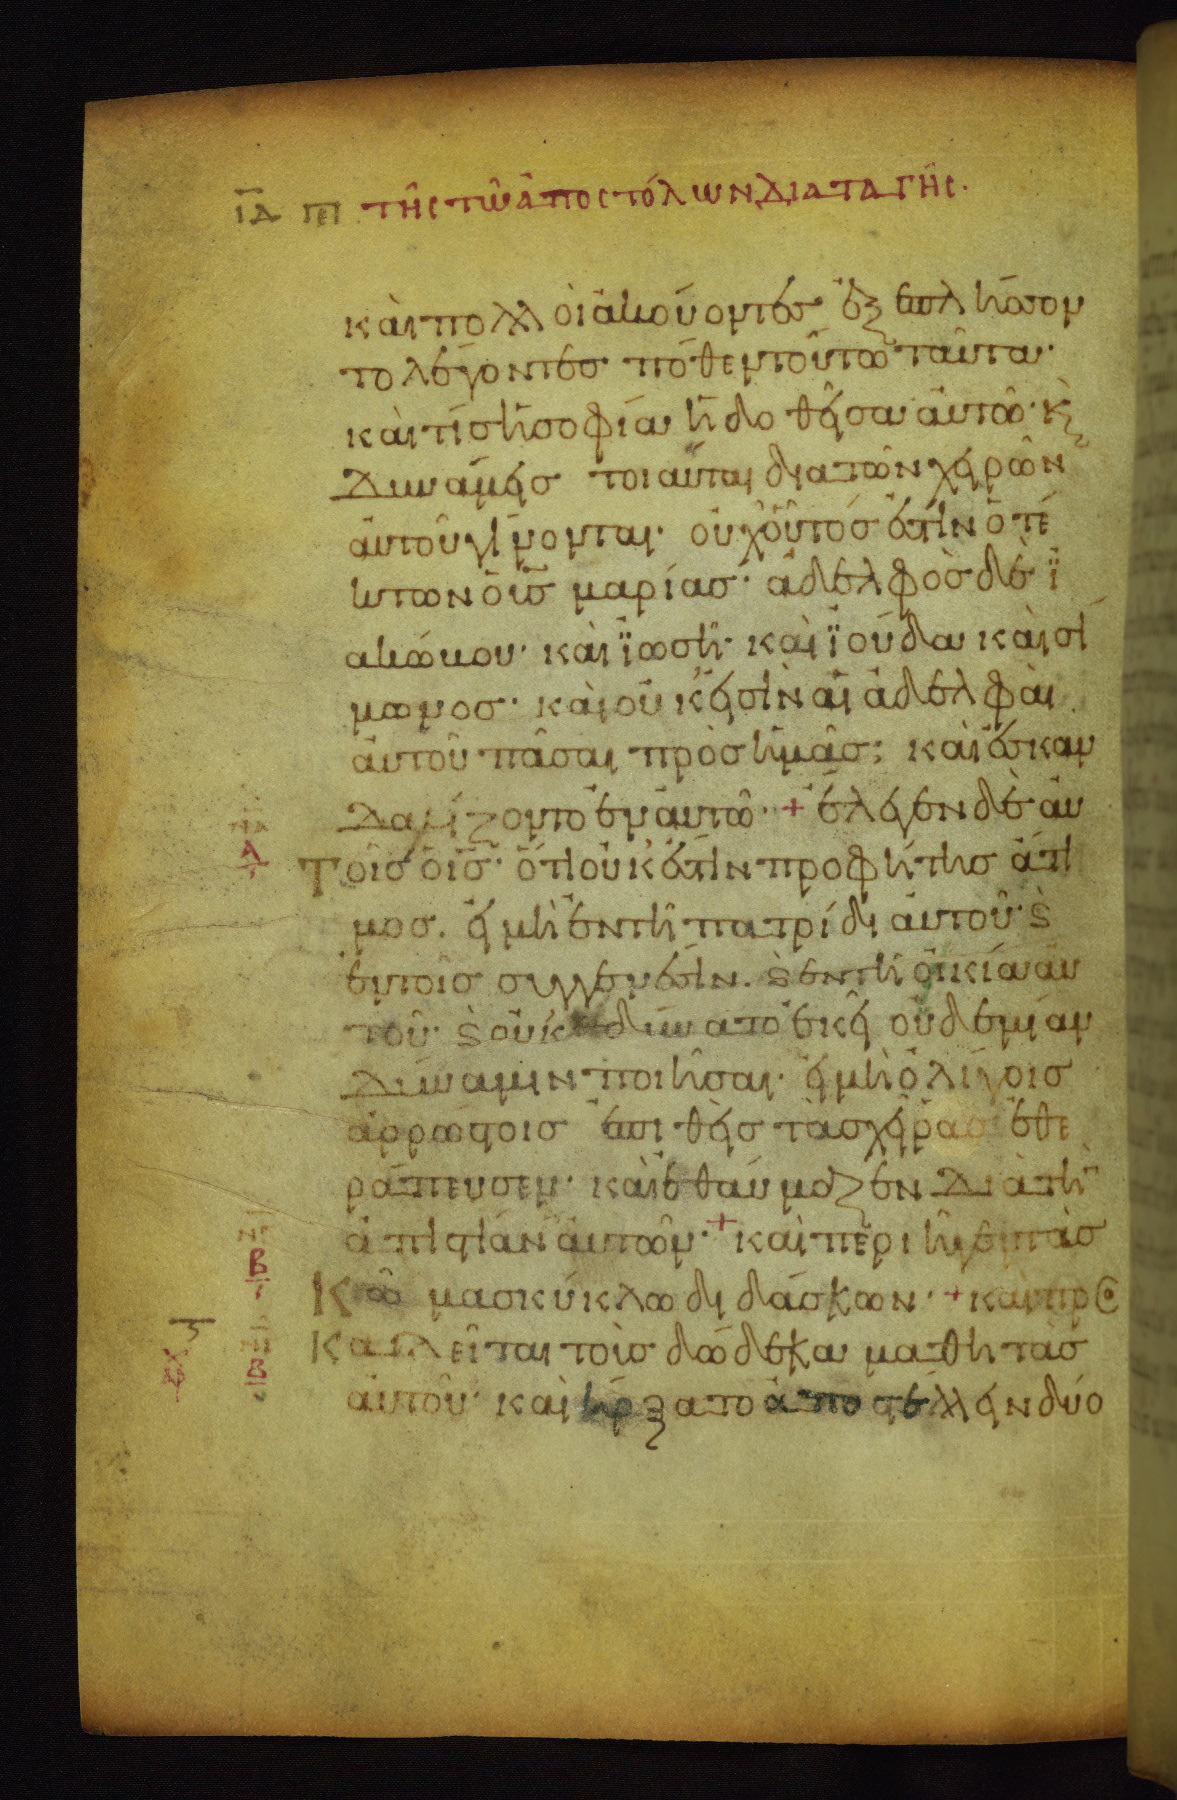 ΙΔ ΠΕΡΙ ΤΗ͂Σ ΤΩ͂ ἈΠΟΣΤΌΛΩΝ ΔΙΑΤΑΓΗ͂Σ.
καὶ πολλοὶ ἀκούοντες ἐξεπλήσσον
το λέγοντες· πόθεν τούτω ταῦτα·
καὶ τίς ἡ σοφία ἡ δοθεῖσα αὐτῶ· κ̀
δυνάμεις τοιαῦται διὰ τῶν χειρῶν
αὐτοῦ γίνονται· οὐχ οὗτός ἐστιν ὁ τέ
κτων ὁ υ̅ς̅ μαρίας· ἀδελφὸς δὲ ϊ
ακώβου· καὶ ϊωσῆ· καὶ ϊούδα καὶ σί
μωνος· καὶ οὐκ εἰσὶν αἱ ἀδελφαὶ
αὐτοῦ πᾶσαι πρὸς ἡμᾶς; καὶ ἐσκαν
δαλίζοντο ἐν αὐτῶ· + ἔλεγεν δὲ αὐ
τοῖς ὁ ι̅ς̅· ὅτι οὐκ ἔστιν προφήτης ἄτι
μος. εἰ μὴ ἐν τῆ πατρίδι αὐτοῦ· ϗ
ἐν τοῖς συγγενέσιν. ϗ ἐν τῆ οἰκία αὐ
τοῦ· ϗ οὐκ ἠδύνατο ἐκεῖ οὐδεμίαν
δύναμιν ποιῆσαι· εἰ μὴ ὀλίγοις
ἀρρώστοις ἐπιθεὶς τὰς χεῖρας ἐθε
ράπευσεν· καὶ ἐθαύμαζεν διὰ τὴν
ἀπιστίαν αὐτῶν· + καὶ περιῆγεν τὰς
κώμας κύκλω διδάσκων· + καὶ προσ
καλεῖται τοὺς δώδεκα μαθητὰς
αὐτοῦ· καὶ ἤρξατο ἀποστέλλειν δύο